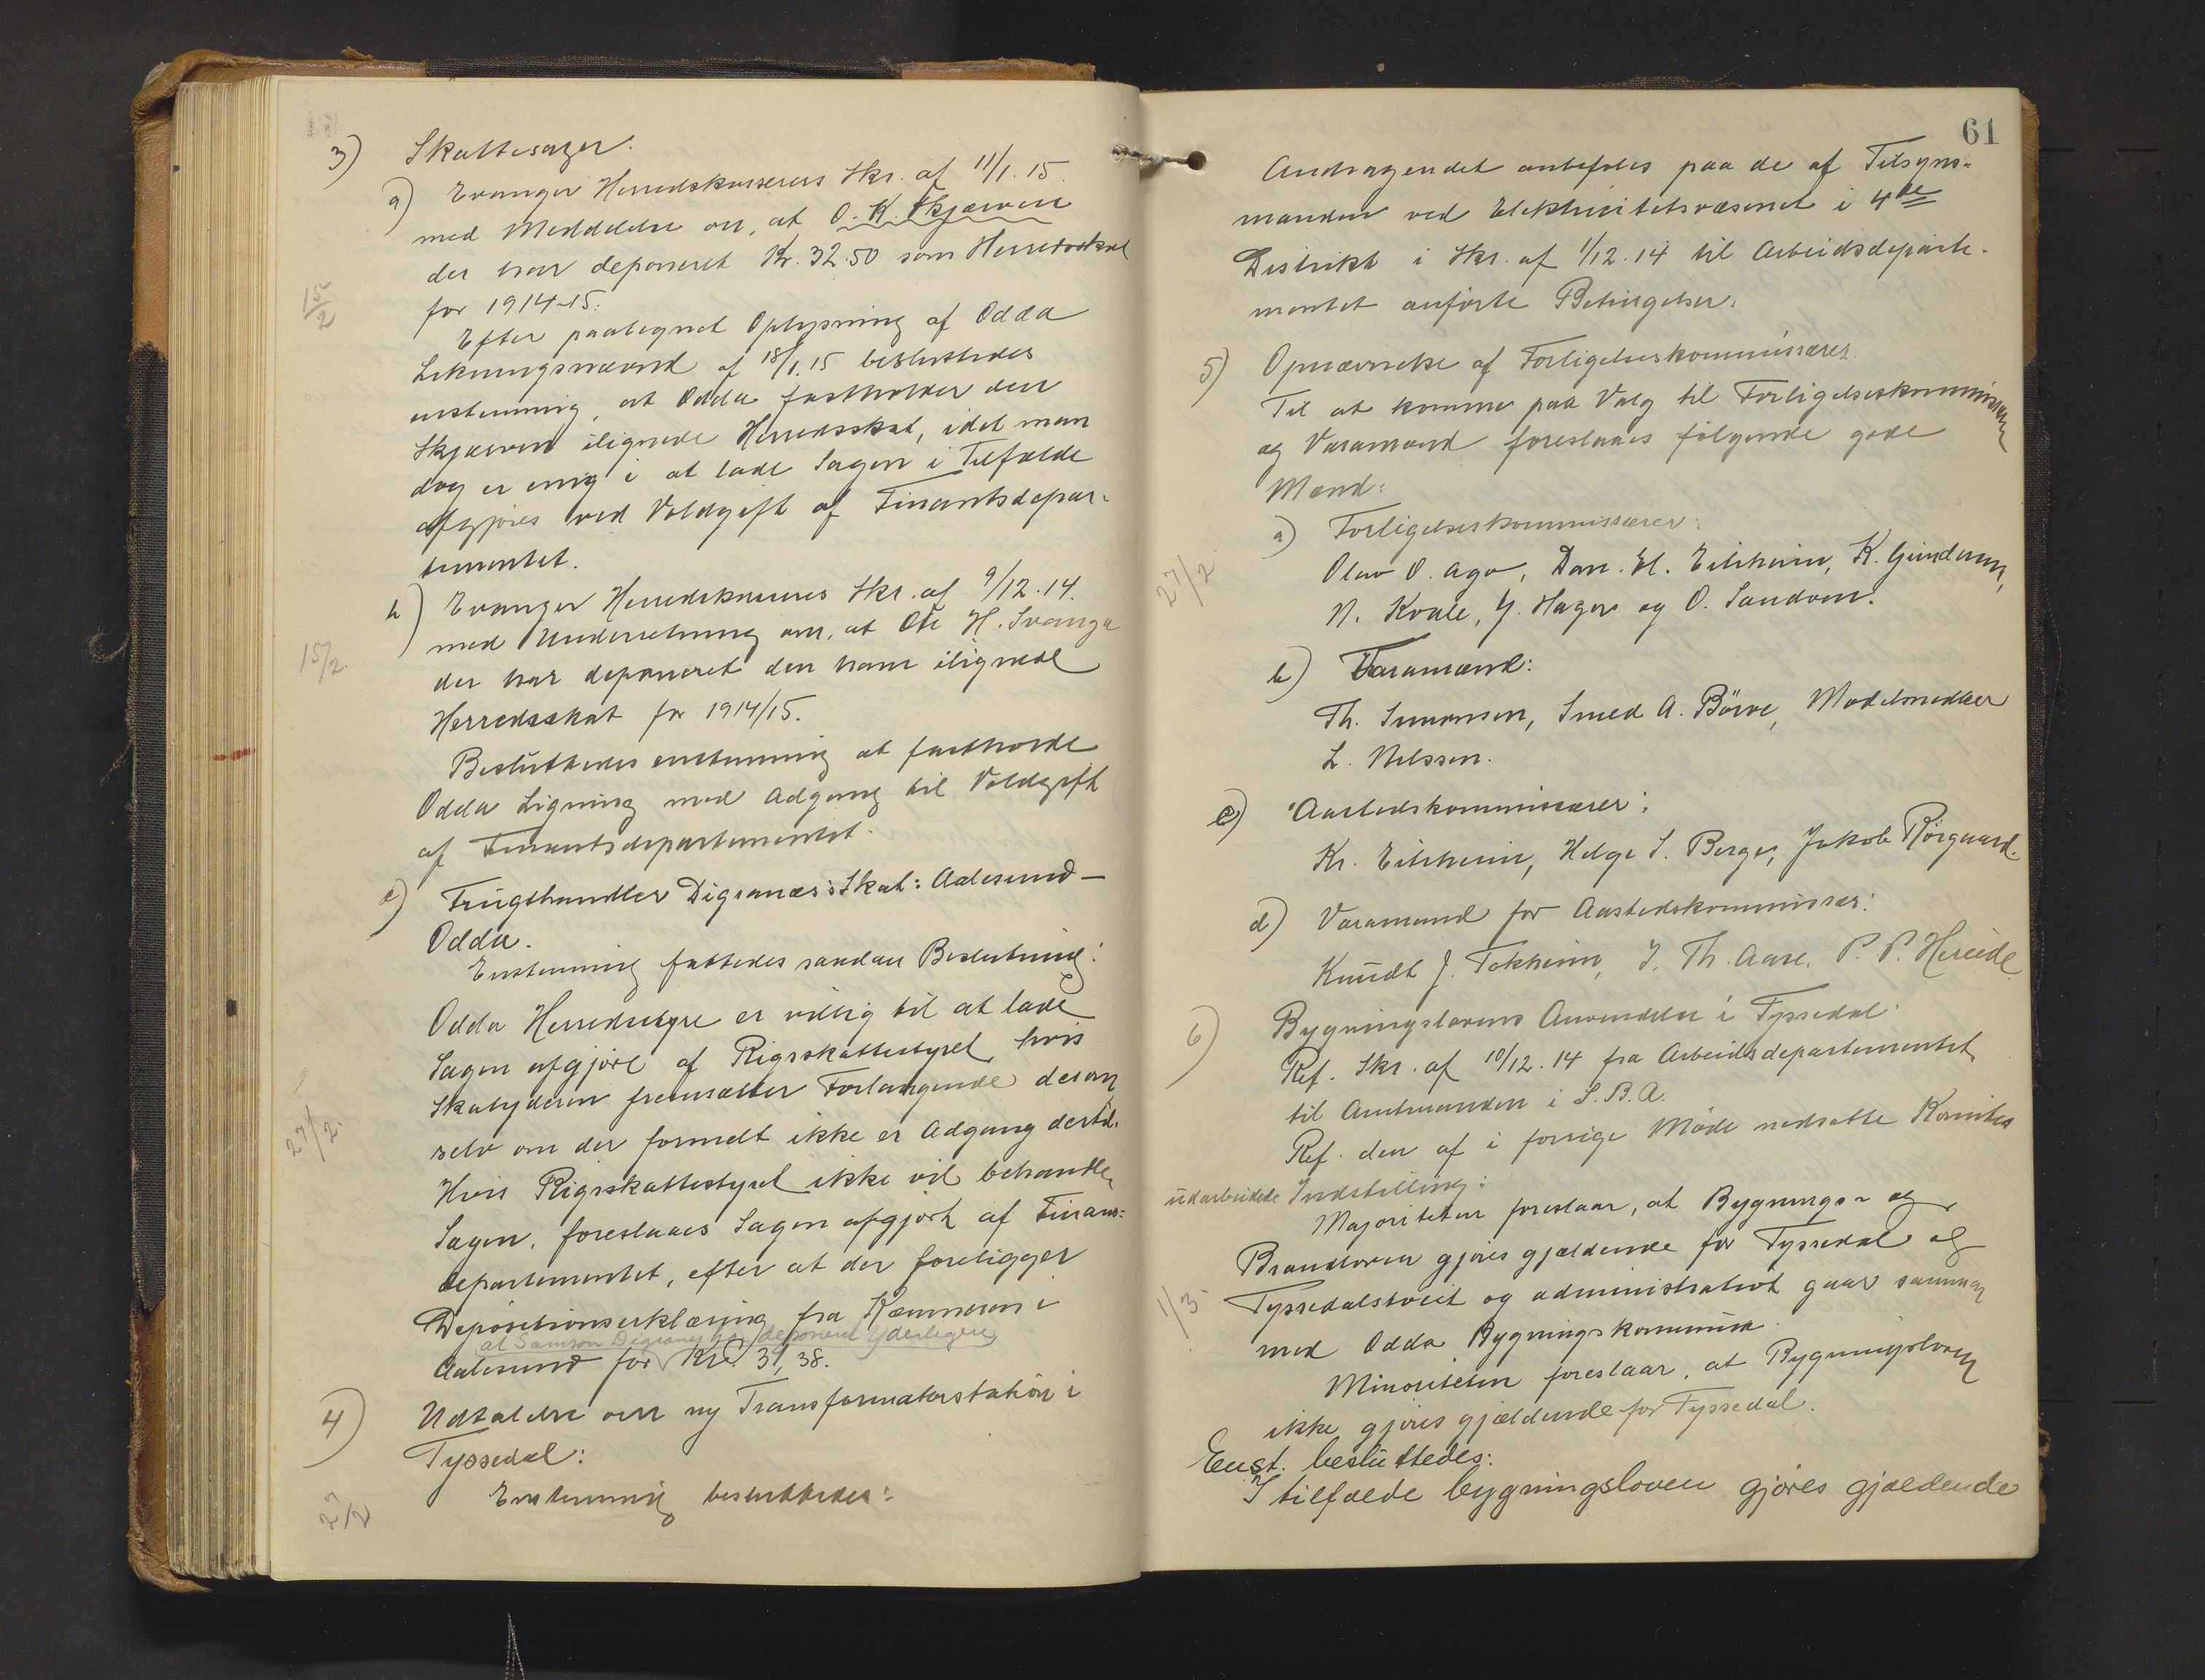 3) Skattesager.
a) Evanger Herredskasserers Skr. af 11/1. 15.
med Meddelelse om, at O. K. Skjærven
der har deponeret Kr. 32.50 som Herredsskat
for 1914-15.
15/2
Efter paategnet Oplysning af Odda
Ligningsnævnd af 18/1. 15 besluttedes
enstemmig, at Odda fastholder den
Skjærven ilignede Herredsskat, idet man
dog er enig i at lade Sagen i Tilfælde
afgjøres ved Voldgift af Finantsdepar-
tementet.
b) Evanger Herredskasseres Skr. af 9/12. 14.
med Underretning om, at Ole H. Evanger
15/2.
der har deponeret den ham ilignede
Herredsskat for 1914/15.
Besluttedes enstemmig at fastholde
Odda Ligning med Adgang til Voldgift
af Finantsdepartementet.
c) Frugthandler Digranæs's Skat: Aalesund-
Odda.
Enstemmig fattedes saadan Beslutning:
Odda Herredsstyre er villig til at lade
Sagen afgjøre af Rigsskattestyret, hvis
Skatyderen fremsætter Forlangende derom
27/2.
selv om der formelt ikke er Adgang dertil.
Hvis Rigsskattestyret ikke vil behandle
Sagen, foreslaaes Sagen afgjort af Finans-
departementet, efter at der foreligger
Depositionserklæring fra Kæmneren i
at Samson Digranes har deponeret yderligere
Aalesund for Kr. 31,38.
4) Udtalelse om ny Transformatorstation i
Tyssedal:
27/2
Enstemmig besluttedes:
61
Andragendet anbefales paa de af Tilsyns-
manden ved Elektricitetsvæsenet i 4de
Distrikt i Skr. af 1/12. 14 til Arbeidsdeparte-
mentet anførte Betingelser.
5) Opnævnelse af Forligelseskommissærer
Til at komme paa Valg til Forligelseskommissærer
og Varamænd foreslaaes følgende gode
Mænd:
a) Forligelseskommissærer:
27/2
Olav O. Aga, Dan. El. Eitrheim, K. Gundersen,
N. Kvale, J. Hagen og O. Sandven.
b) Varamænd:
Th. Simonsen, Smed A. Børve, Modelsnedker
L. Nilssen.
c) Aastedskommissærer:
Kr. Eitrheim, Helge S. Berge, Jakob Rørgaard.
d) Varamænd for Aastedskommissær:
Knudt J. Tokheim, J. Th. Aase, P. P. Hereide
6) Bygningslovens Anvendelse i Tyssedal.
Ref. Skr. af 10/12. 14 fra Arbeidsdepartementet
til Amtmanden i S. B. A.
Ref. den af i forrige Møde nedsatte Komite
udarbeidede Indstilling:
Majoriteten foreslaar, at Bygnings- og
Brandloven gjøres gjældende for Tyssedal og
1/3
Tyssedalstveit og administrativt gaar sammen
med Odda Bygningskommune.
Minoriteten foreslaar, at Bygningsloven
ikke gjøres gjældende for Tyssedal.
Enst. besluttedes:
I tilfælde bygningsloven gjøres gjældende